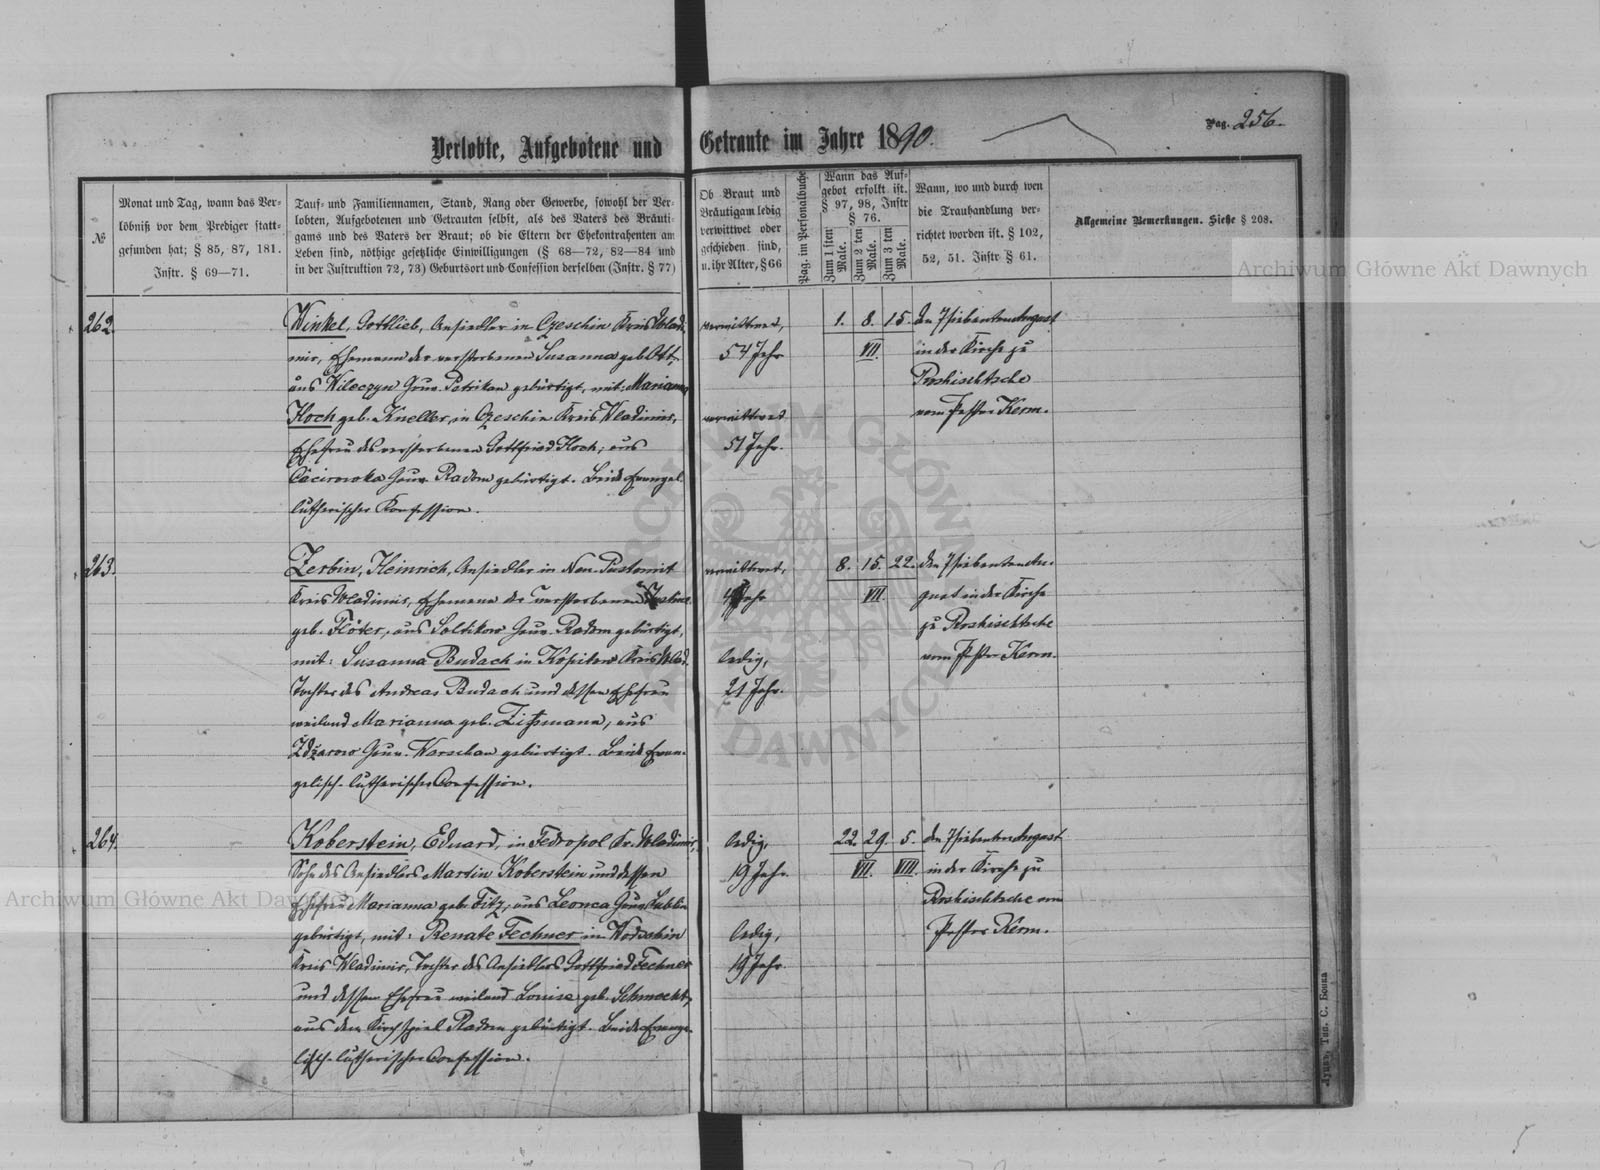 Pag. 256.
Verlobte, Aufgebotene und Getraute im Jahre 1890.
№
Monat und Tag, wann das Ver-
löbniß vor dem Prediger statt-
gefunden hat; § 85, 87, 181.
Instr. § 69—71.
Tauf- und Familiennamen, Stand, Rang oder Gewerbe, sowohl der Ver-
lobten, Aufgebotenen und Getrauten selbst, als des Vaters des Bräuti-
gams und des Vaters der Braut; ob die Eltern der Ehekontrahenten am
Leben sind, nöthige gesetzliche Einwilligungen (§ 68—72, 82—84 und
in der Instruktion 72, 73) Geburtsort und Confession derselben (Instr. § 77)
Ob Braut und
Bräutigam ledig
verwittwet oder
geschieden sind,
u. ihr Alter, § 66
Pag. im Personalbuche
Wann das Auf-
gebot erfolgt ist.
§ 97, 98, Instr
§ 76.
Zum 1 sten
Male.
Zum 2 ten
Male.
Zum 3 ten
Male.
Wann, wo und durch wen
die Trauhandlung ver-
richtet worden ist. § 102,
52, 51. Instr § 61.
Allgemeine Bemerkungen. Siehe § 208.
262.
Winkel, Gottlieb, Ansiedler in Czeschin Kreis Wladi-
mir, Ehemann der verstorbenen Susanna geb. Ott,
aus Wileczyn Gouv. Petrikau gebürtigt, mit: Marianna
Koch geb. Kneller, in Czeschin Kreis Wladimir,
Ehefrau des verstorbenen Gottfried Koch, aus
Gouv. Radom gebürtigt. Beide Evangel.
lutherischer Konfession.
verwittwet,
54 Jahr
verwittwet
51 Jahr.
1. 8. 15.
VII.
den 7 siebenten August
in der Kirche zu
Roshischtsche
vom Pastor Kerm.
263.
Zerbin, Heinrich, Ansiedler in Neu-Pustomit
Kreis Wladimir, Ehemann der verstorbenen Justine
geb. Flöter, aus Soltikow Gouv. Radom gebürtigt,
mit: Susanna Budach in Kopitow Kreis Wlad.
Tochter des Andreas Budach und dessen Ehefrau
weiland Marianna geb. Zißmann, aus
Zdzarow Gouv. Warschau gebürtigt. Beide Evan-
gelisch-lutherischer Confession.
verwittwet,
Jahr
ledig,
21 Jahr.
8. 15. 22.
VII.
den 7 siebenten Au-
gust in der Kirche
zu Roshischtsche
vom Pastor Kerm.
264.
Koberstein, Eduard, in Fedropol Kr. Wladimir,
Sohn des Ansiedlers Martin Koberstein und dessen
Ehefrau Marianna geb. Fitz, aus Leonca Gouv. Lublin
gebürtigt, mit: Renate Fechner in Wodschin
Kreis Wladimir, Tochter des Ansiedlers Gottfried Fechner
und dessen Ehefrau weiland Louise geb. Schmecht,
aus dem Kirchspiel Radom gebürtigt. Beide Evange-
lisch-lutherischer Confession.
ledig,
19 Jahr.
ledig,
19 Jahr.
22. 29. 5.
VII. VIII.
den 7 siebenten August
in der Kirche zu
Roshischtsche vom
Pastor Kerm.
Archiwum Główne Akt Dawnych
Archiwum Główne Akt Dawnych
ARCHIWUM GŁÓWNE AKT DAWNYCH